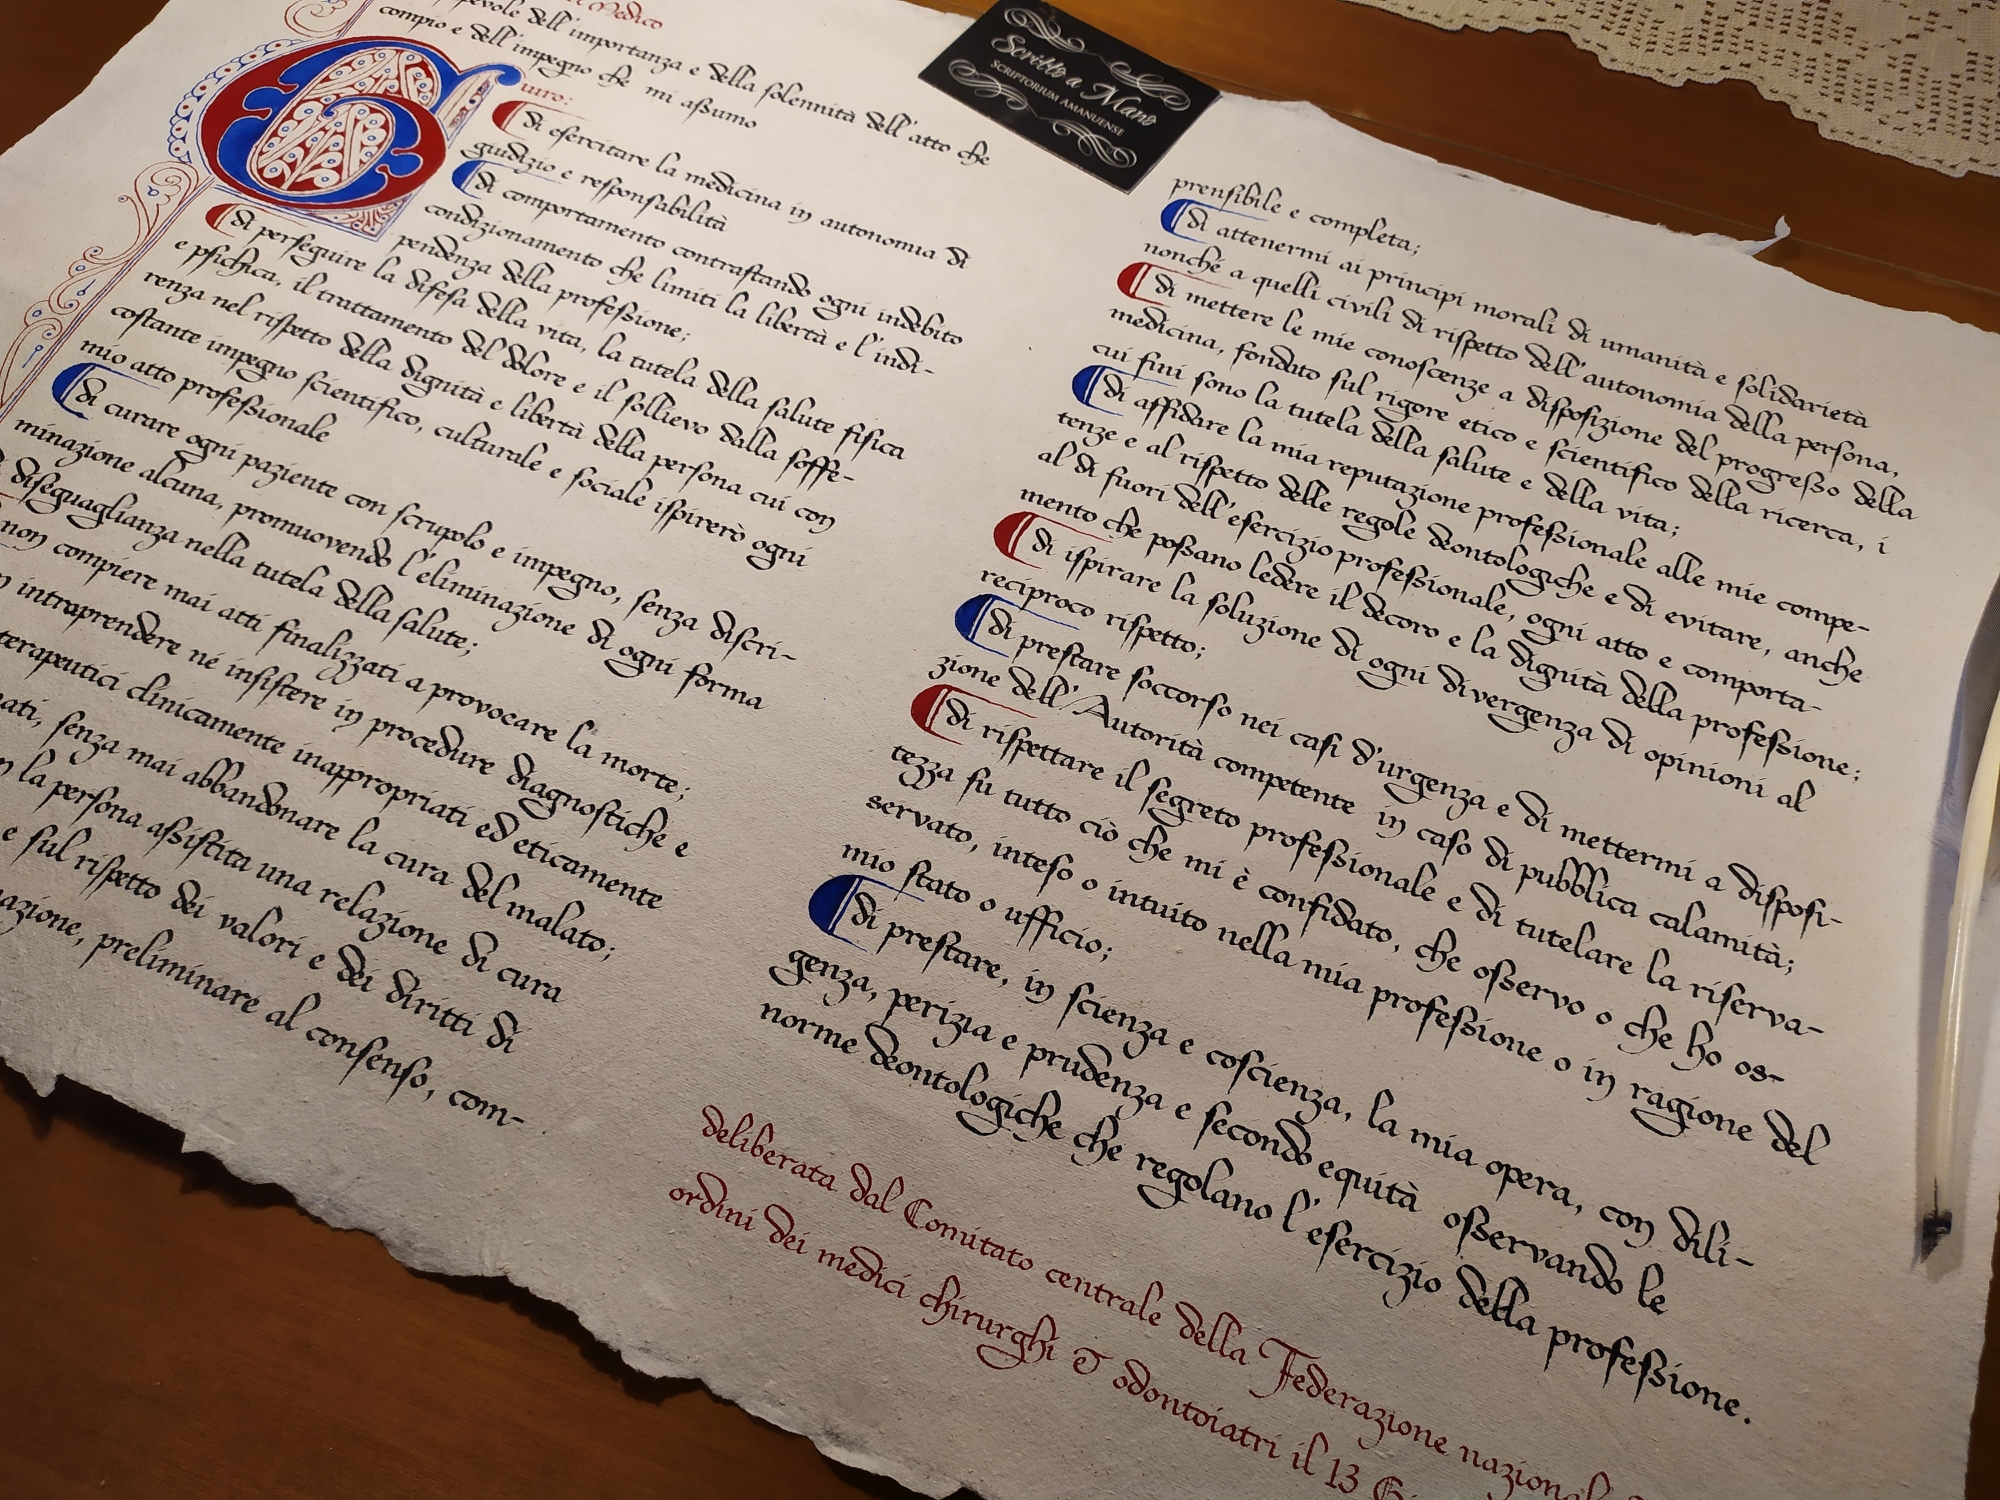 Medico
dell'importanza e della solennità dell'atto che
compio e dell'impegno che mi assumo
Giuro:
di esercitare la medicina in autonomia di
giudizio e responsabilità
di comportamento contrastando ogni indebito
condizionamento che limiti la libertà e l'indi-
pendenza della professione;
di perseguire la difesa della vita, la tutela della salute fisica
e psichica, il trattamento del dolore e il sollievo dalla soffe-
renza nel rispetto della dignità e libertà della persona cui con
costante impegno scientifico, culturale e sociale ispirerò ogni
mio atto professionale
di curare ogni paziente con scrupolo e impegno, senza discri-
minazione alcuna, promuovendo l'eliminazione di ogni forma
diseguaglianza nella tutela della salute;
non compiere mai atti finalizzati a provocare la morte;
intraprendere né insistere in procedure diagnostiche e
terapeutici clinicamente inappropriati ed eticamente
senza mai abbandonare la cura del malato;
la persona assistita una relazione di cura
e sul rispetto dei valori e dei diritti di
preliminare al consenso, com-
Scritto a Mano
SCRIPTORIUM AMANUENSE
prensibile e completa;
di attenermi ai principi morali di umanità e solidarietà
nonché a quelli civili di rispetto dell'autonomia della persona,
di mettere le mie conoscenze a disposizione del progresso della
medicina, fondato sul rigore etico e scientifico della ricerca, i
cui fini sono la tutela della salute e della vita;
di affidare la mia reputazione professionale alle mie compe-
tenze e al rispetto delle regole deontologiche e di evitare, anche
al di fuori dell'esercizio professionale, ogni atto e comporta-
mento che possano ledere il decoro e la dignità della professione;
di ispirare la soluzione di ogni divergenza di opinioni al
reciproco rispetto;
di prestare soccorso nei casi d'urgenza e di mettermi a disposi-
zione dell'Autorità competente in caso di pubblica calamità;
di rispettare il segreto professionale e di tutelare la riserva-
tezza su tutto ciò che mi è confidato, che osservo o che ho os-
servato, inteso o intuito nella mia professione o in ragione del
mio stato o ufficio;
di prestare, in scienza e coscienza, la mia opera, con dili-
genza, perizia e prudenza e secondo equità osservando le
norme deontologiche che regolano l'esercizio della professione.
deliberata dal Comitato centrale della Federazione nazional
ordini dei medici chirurghi & odontoiatri il 13